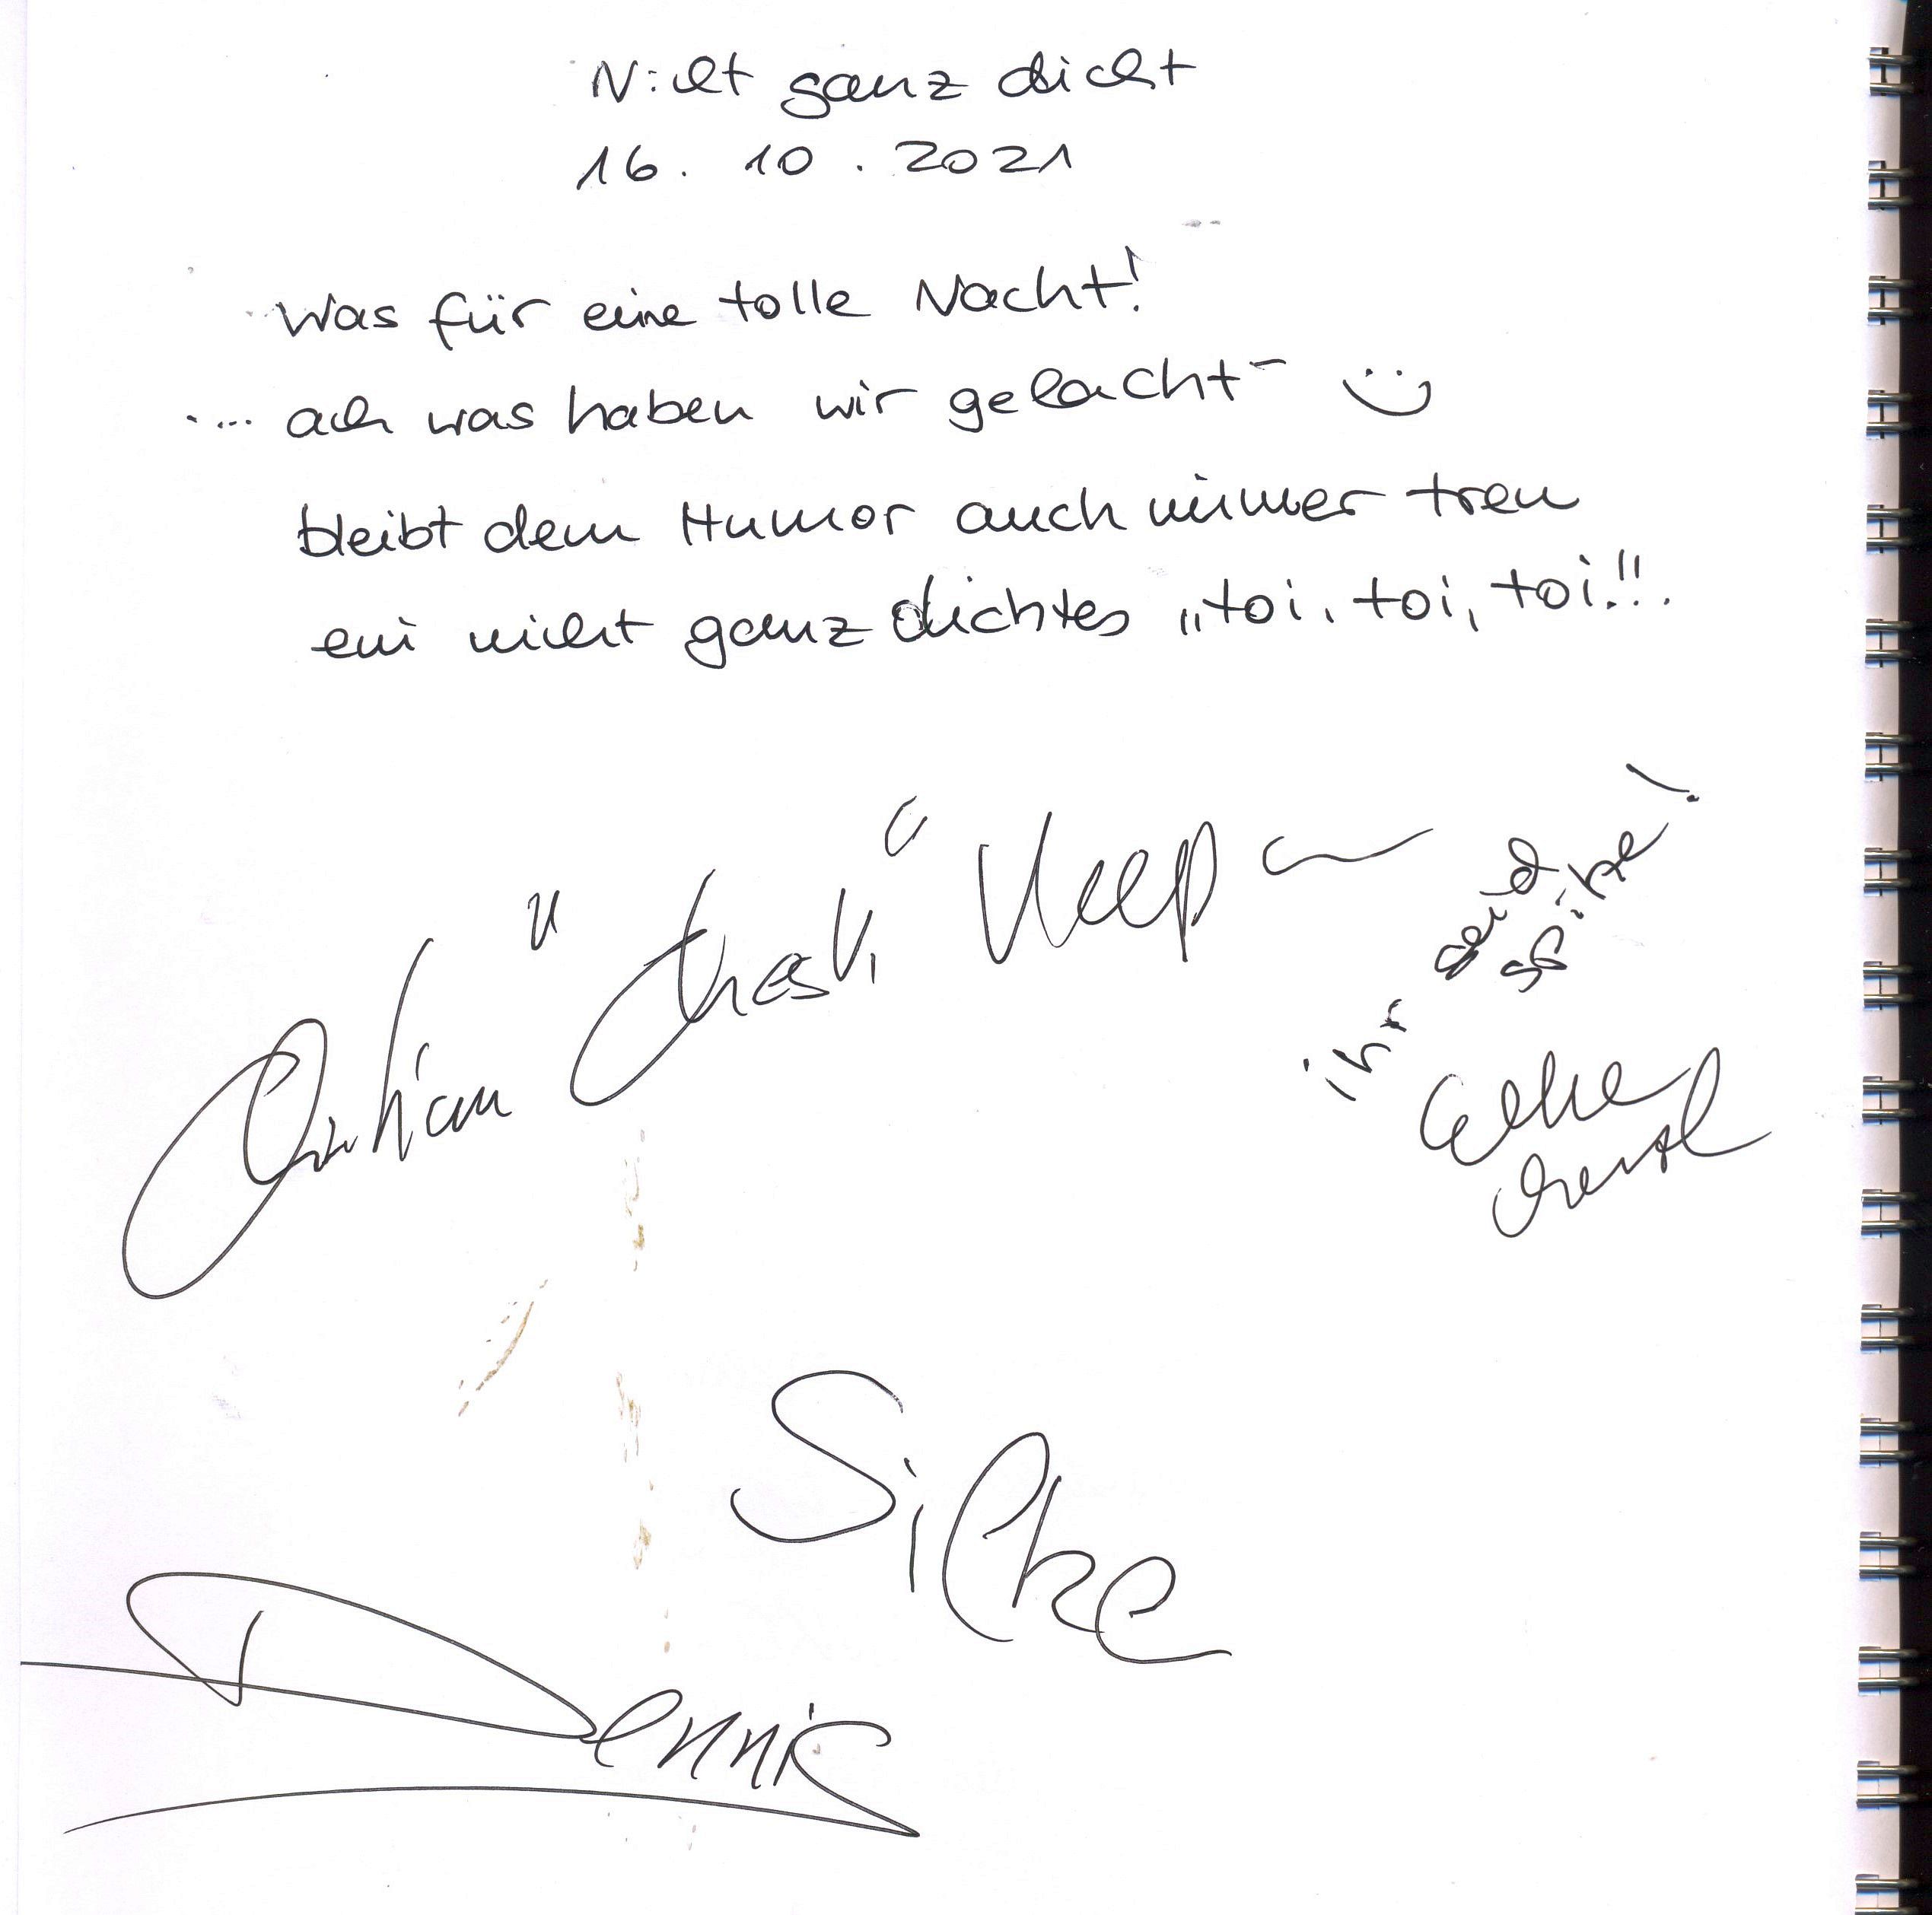 Nicht ganz dicht
16. 10. 2021
Was für eine tolle Nacht!
.... ach was haben wir gelacht-
bleibt dem Humor auch immer treu
ein nicht ganz dichtes „toi, toi, toi!!!
ihr seid
spitze!
Silke
Dennis